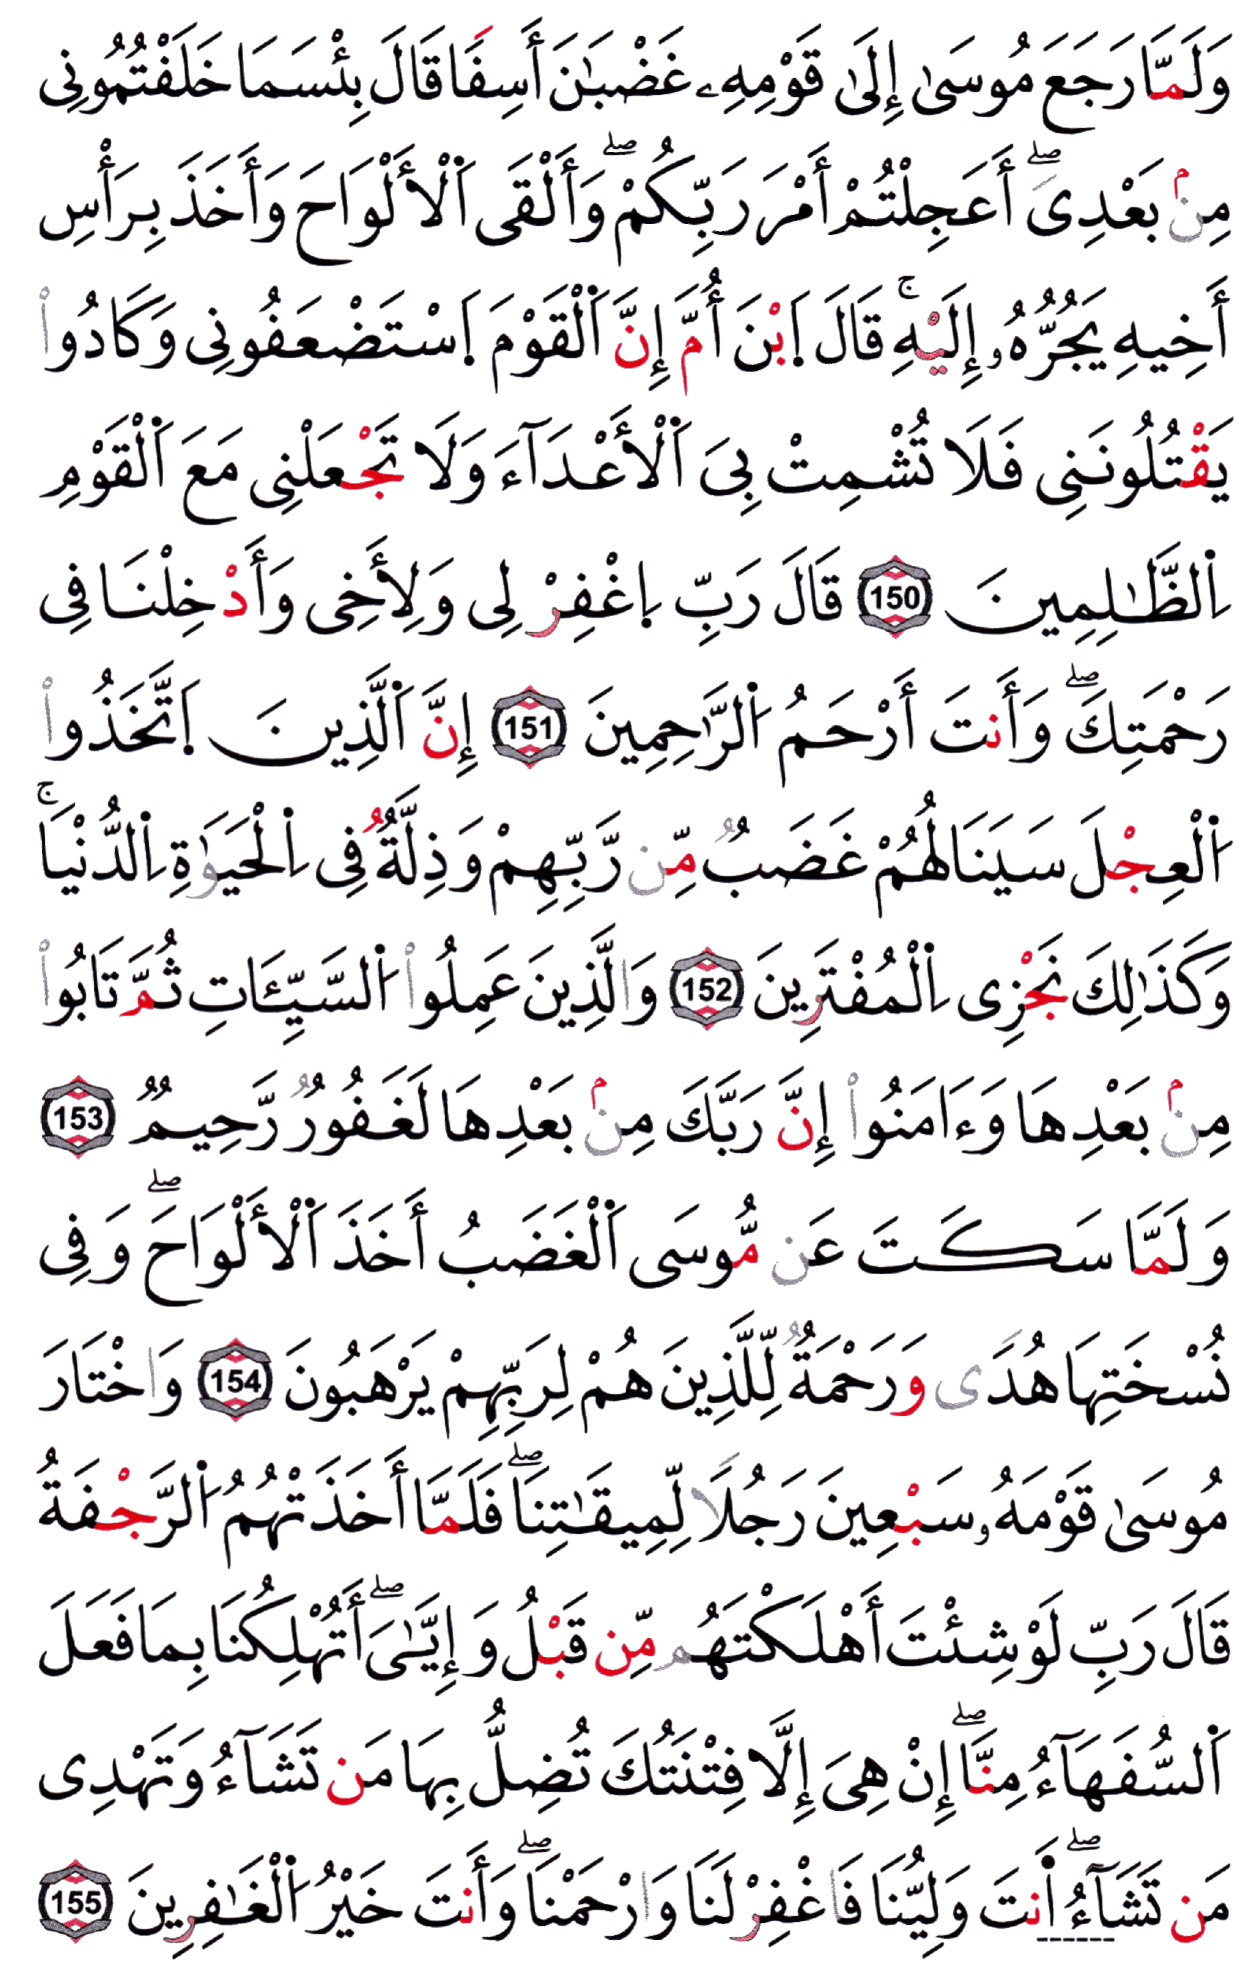 وَلَمَّا رَجَعَ مُوسَىٰ إِلَىٰ قَوْمِهِۦ غَضْبَـٰنَ أَسِفًا قَالَ بِئْسَمَا خَلَفْتُمُونِى
مِنۢ بَعْدِىَۖ أَعَجِلْتُمْ أَمْرَ رَبِّكُمْۖ وَأَلْقَى اَ۬لْأَلْوَاحَ وَأَخَذَ بِرَأْسِ
أَخِيهِ يَجُرُّهُۥ إِلَيْهِۚ قَالَ اَ۪بْنَ أُمَّ إِنَّ اَ۬لْقَوْمَ اَ۪سْتَضْعَفُونِى وَكَادُوا۟
يَقْتُلُونَنِى فَلَا تُشْمِتْ بِىَ اَ۬لْأَعْدَآءَ وَلَا تَجْعَلْنِى مَعَ اَ۬لْقَوْمِ
اِ۬لظَّـٰلِمِينَ 150 قَالَ رَبِّ اِ۪غْفِرْ لِى وَلِأَخِى وَأَدْخِلْنَا فِى
رَحْمَتِكَۖ وَأَنتَ أَرْحَمُ اُ۬لرَّٰحِمِينَ 151 إِنَّ اَ۬لَّذِينَ اَ۪تَّخَذُوا۟
اُ۬لْعِجْلَ سَيَنَالُهُمْ غَضَبٌ مِّن رَّبِّهِمْ وَذِلَّةٌ فِى اِ۬لْحَيَوٰةِ اِ۬لدُّنْيَاۚ
وَكَذَٰلِكَ نَجْزِى اِ۬لْمُفْتَرِينَ 152 وَالَّذِينَ عَمِلُوا۟ اُ۬لسَّيِّـَٔاتِ ثُمَّ تَابُوا۟
مِنۢ بَعْدِهَا وَءَامَنُوا۟ إِنَّ رَبَّكَ مِنۢ بَعْدِهَا لَغَفُورٌ رَّحِيمٌ 153
وَلَمَّا سَكَتَ عَن مُّوسَى اَ۬لْغَضَبُ أَخَذَ اَ۬لْأَلْوَاحَۖ وَفِى
نُسْخَتِهَا هُدًى وَرَحْمَةٌ لِّلَّذِينَ هُمْ لِرَبِّهِمْ يَرْهَبُونَ 154 وَاخْتَارَ
مُوسَىٰ قَوْمَهُۥ سَبْعِينَ رَجُلًا لِّمِيقَـٰتِنَاۖ فَلَمَّا أَخَذَتْهُمُ اُ۬لرَّجْفَةُ
قَالَ رَبِّ لَوْ شِئْتَ أَهْلَكْتَهُم مِّن قَبْلُ وَإِيَّـٰىَۖ أَتُهْلِكُنَا بِمَا فَعَلَ
اَ۬لسُّفَهَآءُ مِنَّاۖ إِنْ هِىَ إِلَّا فِتْنَتُكَ تُضِلُّ بِهَا مَن تَشَآءُ وَتَهْدِى
مَن تَشَآءُۖ اَ۬نتَ وَلِيُّنَا فَاغْفِرْ لَنَا وَارْحَمْنَاۖ وَأَنتَ خَيْرُ اُ۬لْغَـٰفِرِينَ 155